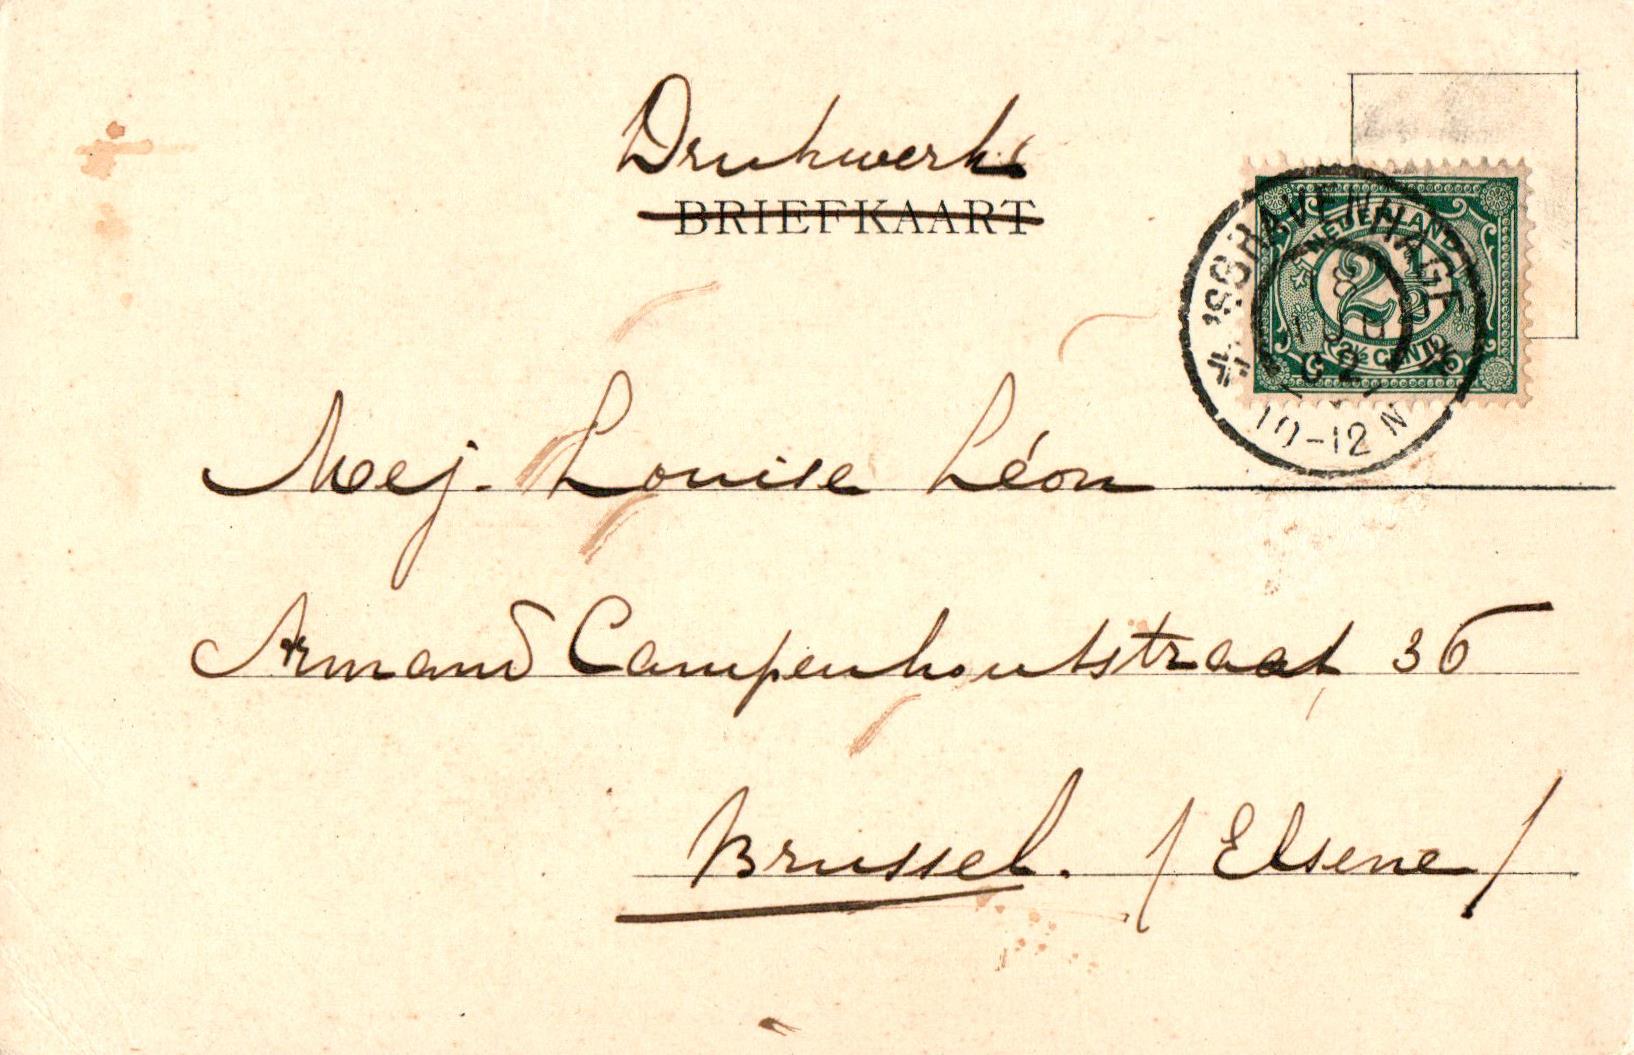 Drukwerk
BRIEFKAART
'SGRAVENHAGE
NEDERLAND
2½
2½ CENT
8
10-12 N
Mej. Louise Léon
Armand Campenhoutstraat 36
Brussel. / Elsene /